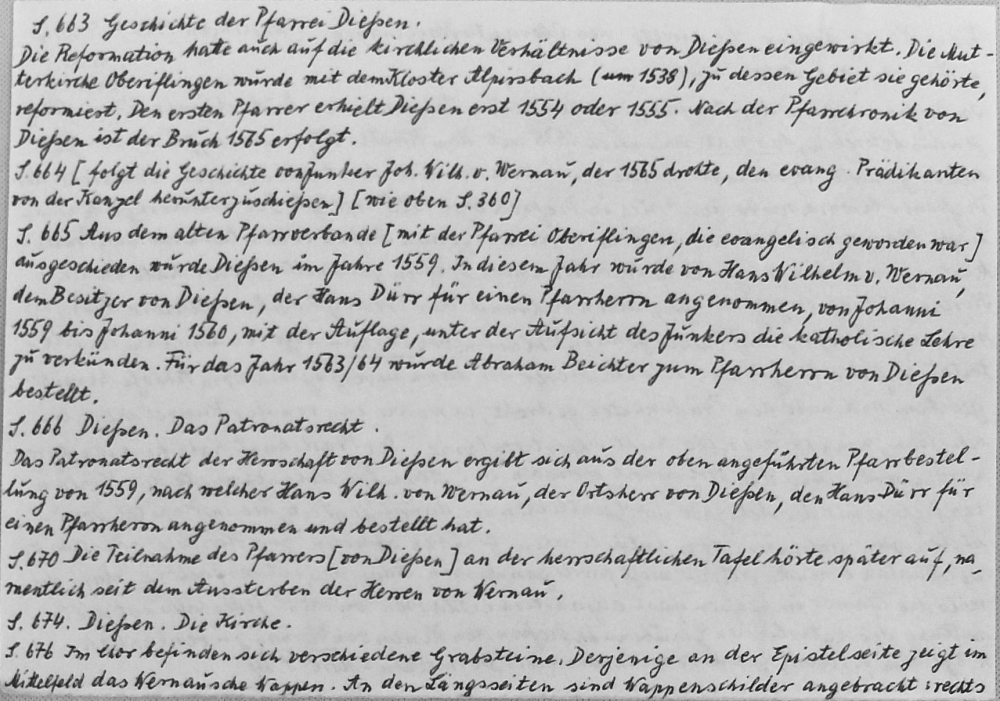 S. 663 Geschichte der Pfarrei Dießen.
Die Reformation hatte auch auf die kirchlichen Verhältnisse von Dießen eingewirkt. Die Mut-
terkirche Oberiflingen wurde mit dem Kloster Alpirsbach (um 1538), zu dessen Gebiet sie gehörte,
reformiert. Den ersten Pfarrer erhielt Dießen erst 1554 oder 1555. Nach der Pfarrchronik von
Dießen ist der Bruch 1565 erfolgt.
S. 664 [folgt die Geschichte von Junker Joh. Wilh. v. Wernau, der 1565 drohte, den evang. Prädikanten
von der Kanzel herunterzuschießen] [wie oben S. 360]
S. 665 Aus dem alten Pfarrverbande [mit der Pfarrei Oberiflingen, die evangelisch geworden war]
ausgeschieden wurde Dießen im Jahre 1559. In diesem Jahr wurde von Hans Wilhelm v. Wernau
dem Besitzer von Dießen, der Hans Dürr für einen Pfarrherrn angenommen, von Johanni
1559 bis Johanni 1560, mit der Auflage, unter der Aufsicht des Junkers die katholische Lehre
zu verkünden. Für das Jahr 1563/64 wurde Abraham Beichter zum Pfarrherrn von Dießen
bestellt.
S. 666 Dießen. Das Patronatsrecht.
Das Patronatsrecht der Herrschaft von Dießen ergibt sich aus der oben angeführten Pfarrbestel-
lung von 1559, nach welcher Hans Wilh. von Wernau, der Ortsherr von Dießen, den Hans Dürr für
einen Pfarrherrn angenommen und bestellt hat.
S. 670 Die Teilnahme des Pfarrers [von Dießen] an der herrschaftlichen Tafel hörte später auf, na
mentlich seit dem Aussterben der Herren von Wernau.
S. 674. Dießen. Die Kirche.
S. 676 Im Chor befinden sich verschiedene Grabsteine. Derjenige an der Epistelseite zeigt im
Mittelfeld das Wernausche Wappen. An den Längsseiten sind Wappenschilder angebracht: rechts